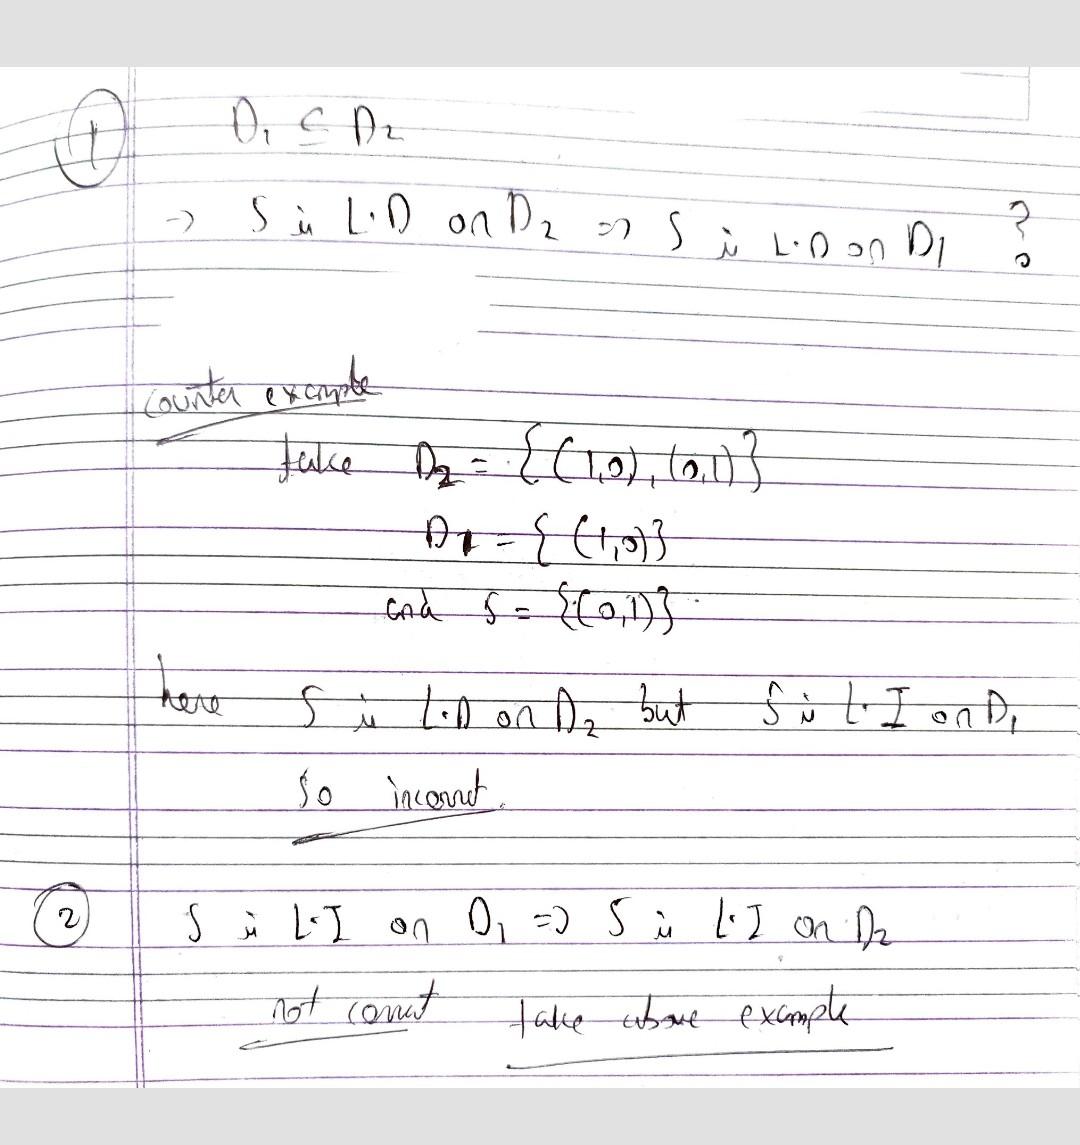 1 D₁ ⊆ D₂
→ S is L.D on D₂ => S is L.D on D₁ ?
Counter example
take D₂ = {(1,0), (0,1)}
D₁ = {(1,0)}
and S = {(0,1)}
here S is L.D on D₂ but S is L.I on D₁
So incorrect.
2 S is L.I on D₁ => S is L.I on D₂
not correct take above example